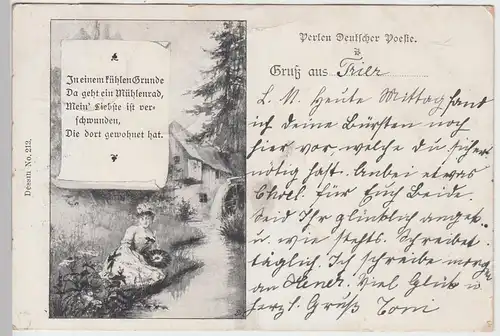 In einem kühlen Grunde
Da geht ein Mühlenrad,
Mein' Liebste ist ver-
schwunden,
Die dort gewohnet hat.
Dessin No. 212.
Perlen Deutscher Poesie.
Gruß aus Trier
L. N. Heute Mittag fand
ich deine Bürsten noch
hier vor, welche du sicher
nötig hast. Anbei etwas
für Euch Beide.
Seid Ihr glücklich angek.
u. wie stehts. Schreibet
täglich. Ich schreibe morg.
an. Viel Glück u
herzl. Gruß Toni